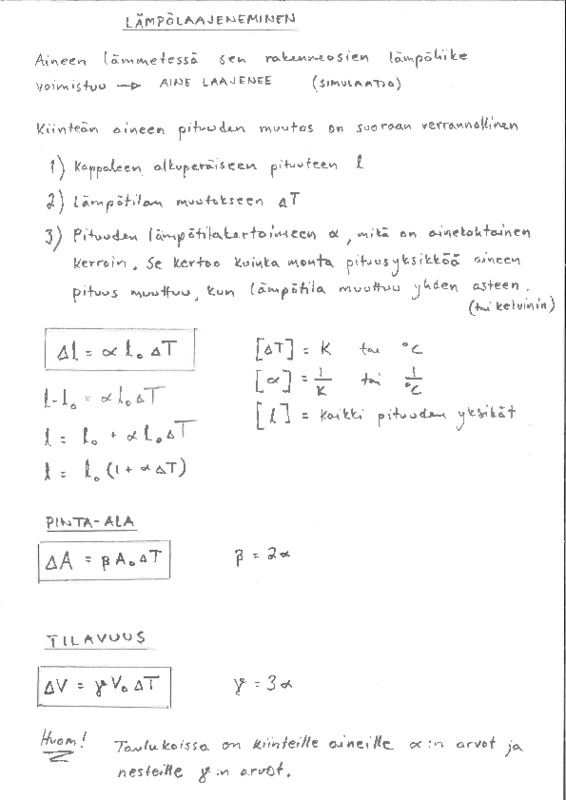 LÄMPÖLAAJENEMINEN
Aineen lämmetessä sen rakenneosien lämpöliike
voimistuu → AINE LAAJENEE (SIMULAATIO)
Kiinteän aineen pituuden muutos on suoraan verrannollinen
1) Kappaleen alkuperäiseen pituuteen l
2) Lämpötilan muutokseen ΔT
3) Pituuden lämpötilakertoimeen α, mikä on ainekohtainen
kerroin. Se kertoo kuinka monta pituusyksikköä aineen
pituus muuttuu, kun lämpötila muuttuu yhden asteen.
(tai kelvinin)
Δl = α l₀ ΔT [ΔT] = K tai °C
l-l₀ = α l₀ ΔT [α] = 1/K tai 1/°C
l = l₀ + α l₀ ΔT [l] = kaikki pituuden yksiköt
l = l₀ (1 + α ΔT)
PINTA-ALA
ΔA = β A₀ ΔT β = 2α
TILAVUUS
ΔV = γ V₀ ΔT γ = 3α
Huom! Taulukoissa on kiinteille aineille α:n arvot ja
nesteille γ:n arvot.